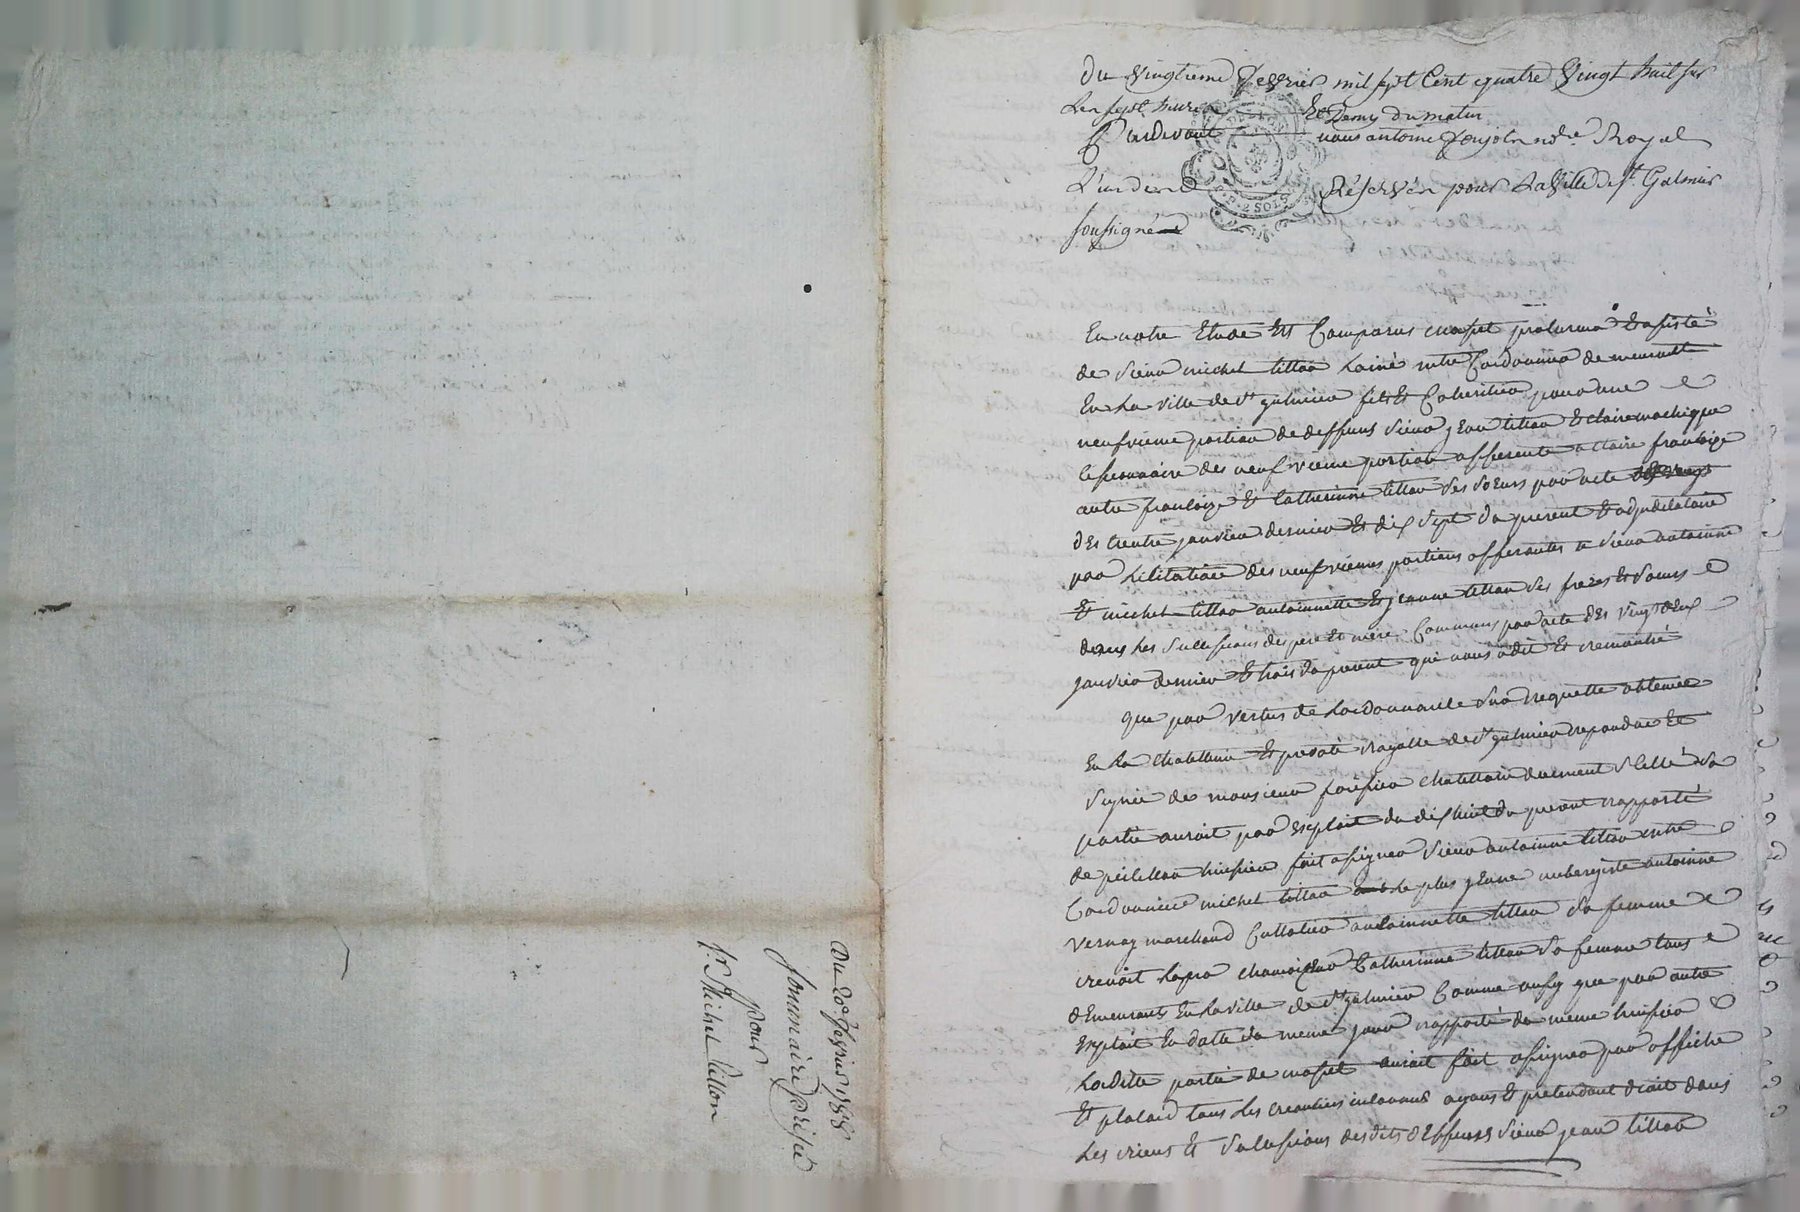 Du 20e fevrier 1788
Sommaire prisée
pour
Sr. Michel tillon
Du vingtieme fevrier mil sept Cent quatre vingt huit sur
Les sept heures Et Demy du matin
Pardevant nous antoine notre. Royal
Réservé pour La ville de st. Galmier
soussigné
GEN DE LYON
P.P. 2 SOLS
En notre Etude Est Comparus assisté
de sieur michel tillon Lainé mtre Cordonnier de meurant
En La ville de st galmier fils Et Coheritier pour une
neufvieme portion de deffunts sieur jean tillon Et claire
Cessionnaire des neufvieme portion afferente a claire francoise
autre francoise Et Catherinne tillon ses soeurs par acte
des trente janvier dernier Et dix sept du present Et adjudicataire
par Licitation des neufviemes portions afferantes a sieur antoinne
Et michel tillon antoinnette Et jeanne tillon ses freres Et soeurs
dans Les successions des pere Et mere Communs par acte des vingt deux
janvier dernier Et trois du present qui nous a dit Et remontré
que par vertus de Lordonnance sur requette obtenue
En La chatellenie Et prevoté royalle de st galmier repondue Et
signée de monsieur chatellain duement scellé sa
partie auroit par Exploit du dix huit du present rapporté
de huissier fait assigner sieur antoinne tillon mtre
Cordonnier michel tillon le plus jeune aubergiste antoinne
vernay marchand antoinnette tillon sa femme
benoit chamoiseur Catherinne tillon sa femme tous
demeurants En La ville de st galmier Comme aussy que par autre
Exploit En datte du meme jour rapporté du meme huissier
Laditte partie de auroit fait assigner par affiche
Et placard tous Les creantiers inconnus ayans Et pretendant droit dans
Les biens Et successions desdits deffunts sieur jean tillon